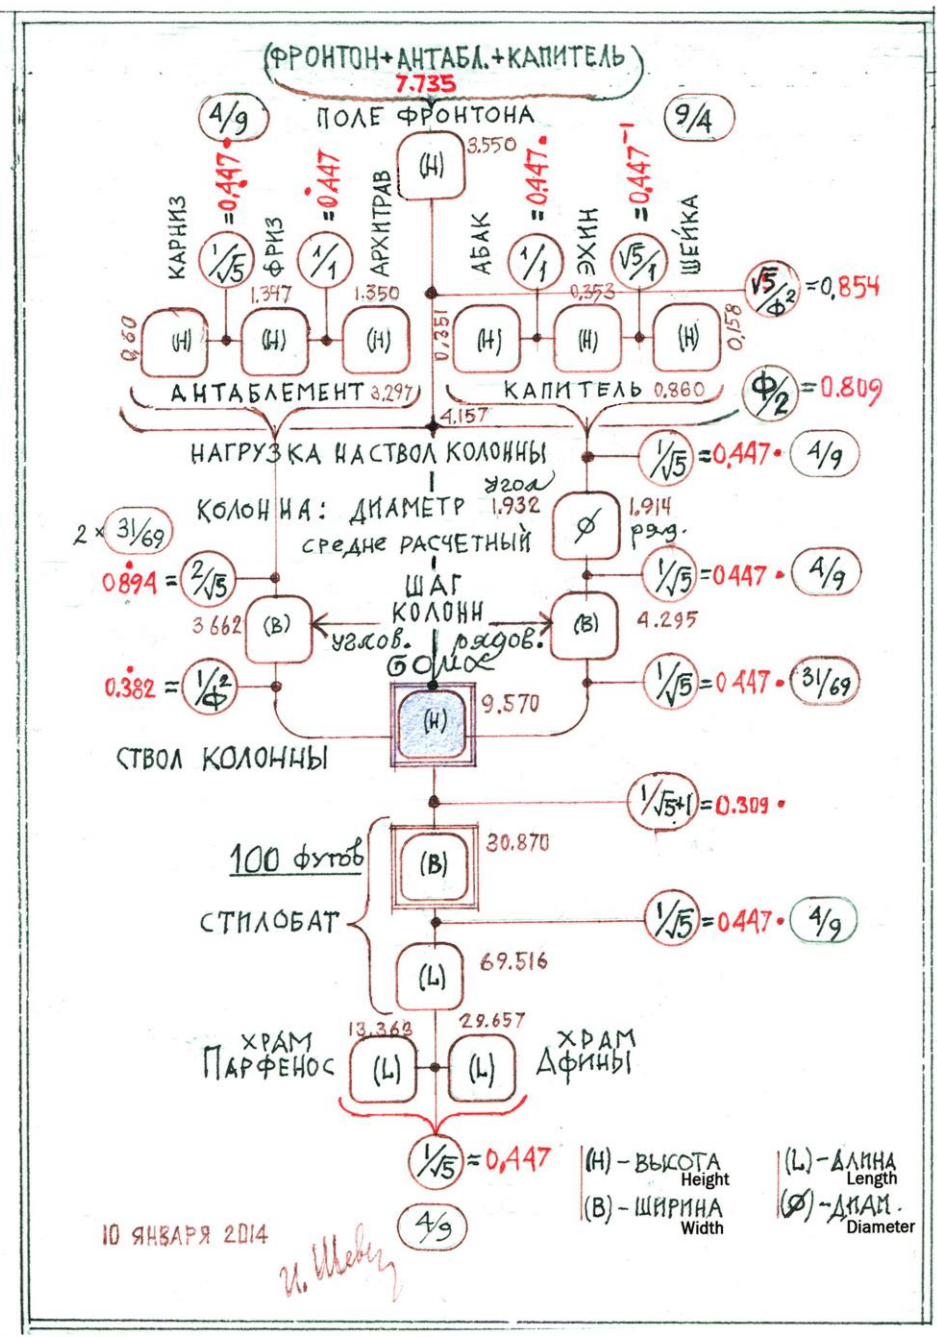 (ФРОНТОН+АНТАБЛ.+КАПИТЕЛЬ)
7.735
4/9
ПОЛЕ ФРОНТОНА
9/4
(H)
3.550
КАРНИЗ
1/√5
=0,447
ФРИЗ
1/1
=0,447
АРХИТРАВ
АБАК
1/1
=0,447
ЭХИН
√5/1
=0,447⁻¹
ШЕЙКА
√5/Ф²
=0,854
1.347
1.350
0,353
0,60
(H)
(H)
(H)
0,351
(H)
(H)
(H)
0,158
АНТАБЛЕМЕНТ 3,297
КАПИТЕЛЬ 0.860
Ф/2
=0.809
4.157
НАГРУЗКА НА СТВОЛ КОЛОННЫ
1/√5
=0,447
4/9
угол
КОЛОННА: ДИАМЕТР 1.932
Ø
1.914
ряд.
средне РАСЧЕТНЫЙ
2 × 31/69
0.894 =
2/√5
1/√5
=0.447
4/9
ШАГ
КОЛОНН
3.662
(B)
углов.
рядов.
(B)
4.295
0.382 =
1/Ф²
1/√5
=0.447
31/69
(H)
9.570
СТВОЛ КОЛОННЫ
1/√5+1
=0.309
100 футов
(B)
30.870
СТИЛОБАТ
1/√5
=0.447
4/9
(L)
69.516
13.363
29.657
ХРАМ
ПАРФЕНОС
(L)
(L)
ХРАМ
АФИНЫ
1/√5
=0,447
4/9
(H)-ВЫСОТА
Height
(B)-ШИРИНА
Width
(L)-ДЛИНА
Length
(Ø)-ДИАМ.
Diameter
10 ЯНВАРЯ 2014